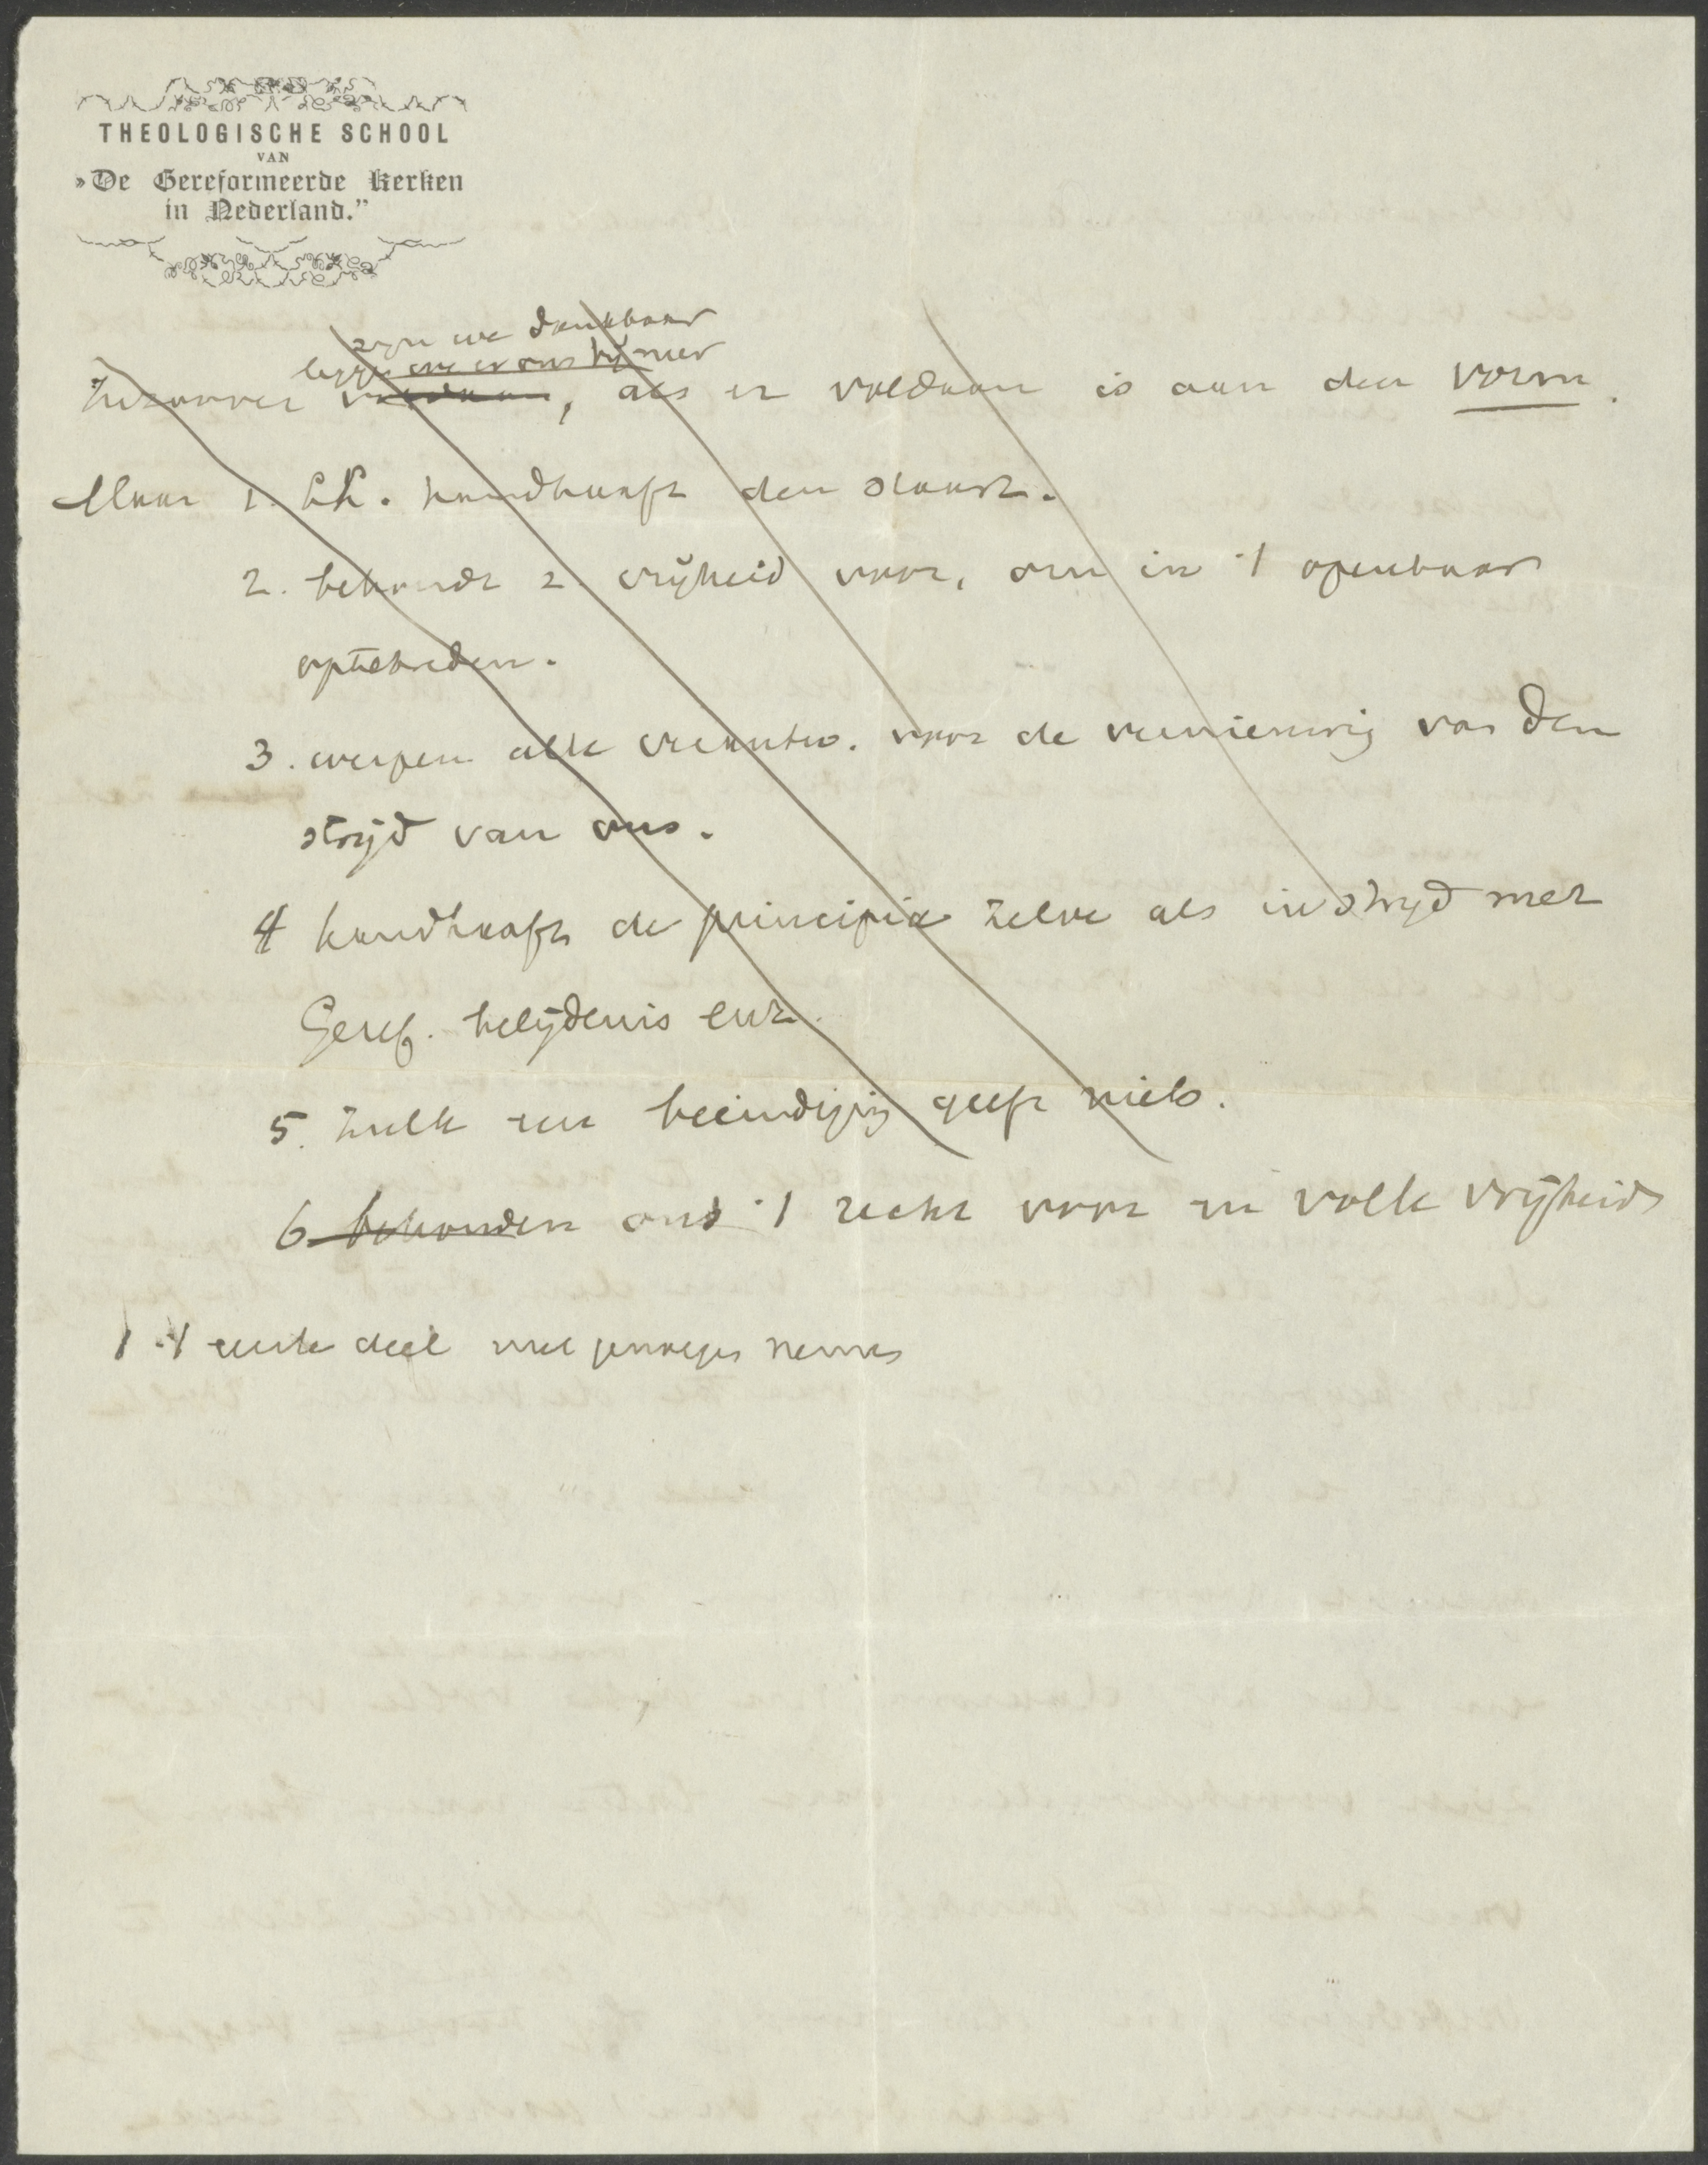 THEOLOGISCHE SCHOOL
VAN
»De Gereformeerde Kerken
in Nederland.”
zijn we dankbaar
leggen we er ons bij neer
voldaan, als er voldaan is aan den vorm.
Maar 1. LK. handhaaft den
2. behoudt z. vrijheid voor, om in 't openbaar
optetreden.
3. werpen alle verantw. voor de vernieuwing van den
strijd van ons.
4 handhaaft de principia zelve als in strijd met
Geref. belijdenis enz.
5. Zulk een beëindiging geeft niets.
6 behouden ons 't recht voor in volle vrijheid
1 't eerste deel met genoegen nemen